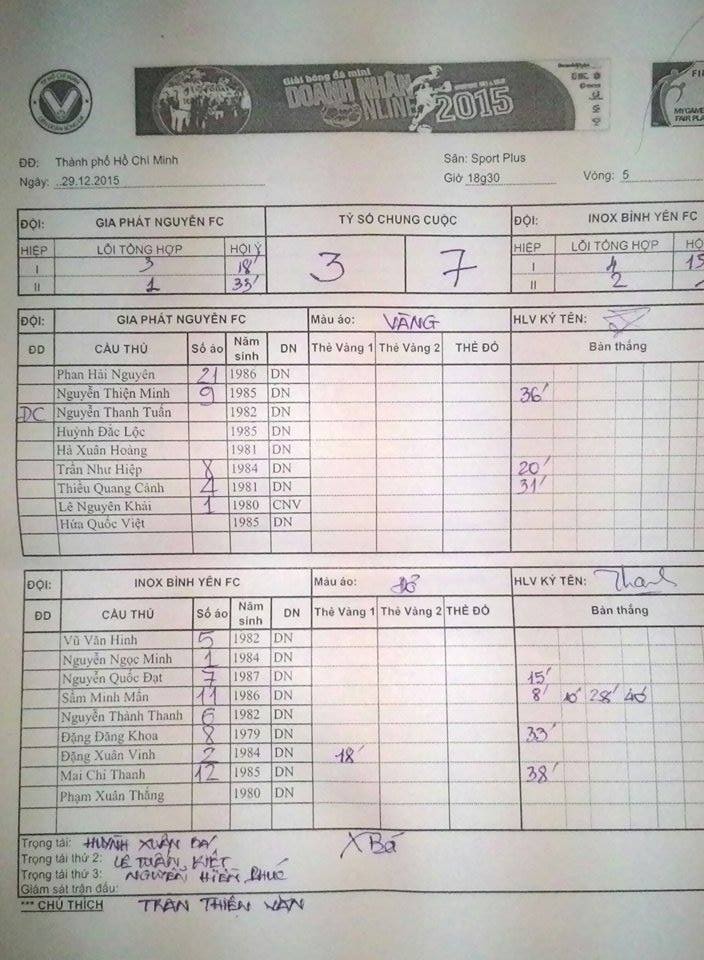 TP HỒ CHÍ MINH
LIÊN ĐOÀN BÓNG ĐÁ
Giải bóng đá mini
DOANH NHÂN
NLINE 2015
MYGAME
FAIR PLA
ĐĐ: Thành phố Hồ Chí Minh
Sân: Sport Plus
Ngày: 29.12.2015
Giờ 18g30
Vòng: 5
ĐỘI: GIA PHÁT NGUYÊN FC TỶ SỐ CHUNG CUỘC ĐỘI: INOX BÌNH YÊN FC
HIỆP LỖI TỔNG HỢP HỘI Ý 3 7 HIỆP LỖI TỔNG HỢP HỘ
I 3 18' I 4 15
II 1 33' II 2
ĐỘI: GIA PHÁT NGUYÊN FC Màu áo: VÀNG HLV KÝ TÊN:
ĐD CẦU THỦ Số áo Năm sinh DN Thẻ Vàng 1 Thẻ Vàng 2 THẺ ĐỎ Bàn thắng
Phan Hải Nguyên 21 1986 DN
Nguyễn Thiện Minh 9 1985 DN 36'
DC Nguyễn Thanh Tuấn 1982 DN
Huỳnh Đắc Lộc 1985 DN
Hà Xuân Hoàng 1981 DN
Trần Như Hiệp 8 1984 DN 20'
Thiều Quang Cảnh 4 1981 DN 31'
Lê Nguyên Khải 1 1980 CNV
Hứa Quốc Việt 1985 DN
ĐỘI: INOX BÌNH YÊN FC Màu áo: Đỏ HLV KÝ TÊN: Thanh
ĐD CẦU THỦ Số áo Năm sinh DN Thẻ Vàng 1 Thẻ Vàng 2 THẺ ĐỎ Bàn thắng
Vũ Văn Hinh 5 1982 DN
Nguyễn Ngọc Minh 1 1984 DN
Nguyễn Quốc Đạt 7 1987 DN 15'
Sầm Minh Mân 11 1986 DN 8' 10' 28' 40'
Nguyễn Thành Thanh 6 1982 DN
Đặng Đăng Khoa 8 1979 DN 33'
Đặng Xuân Vinh 2 1984 DN 18'
Mai Chí Thanh 12 1985 DN 38'
Phạm Xuân Thắng 1980 DN
Trọng tài: HUỲNH XUÂN BÁ XBá
Trọng tài thứ 2: LÊ TUẤN KIỆT
Trọng tài thứ 3: NGUYỄN HIỀN PHÚC
Giám sát trận đấu:
*** CHÚ THÍCH TRẦN THIỆN VĂN